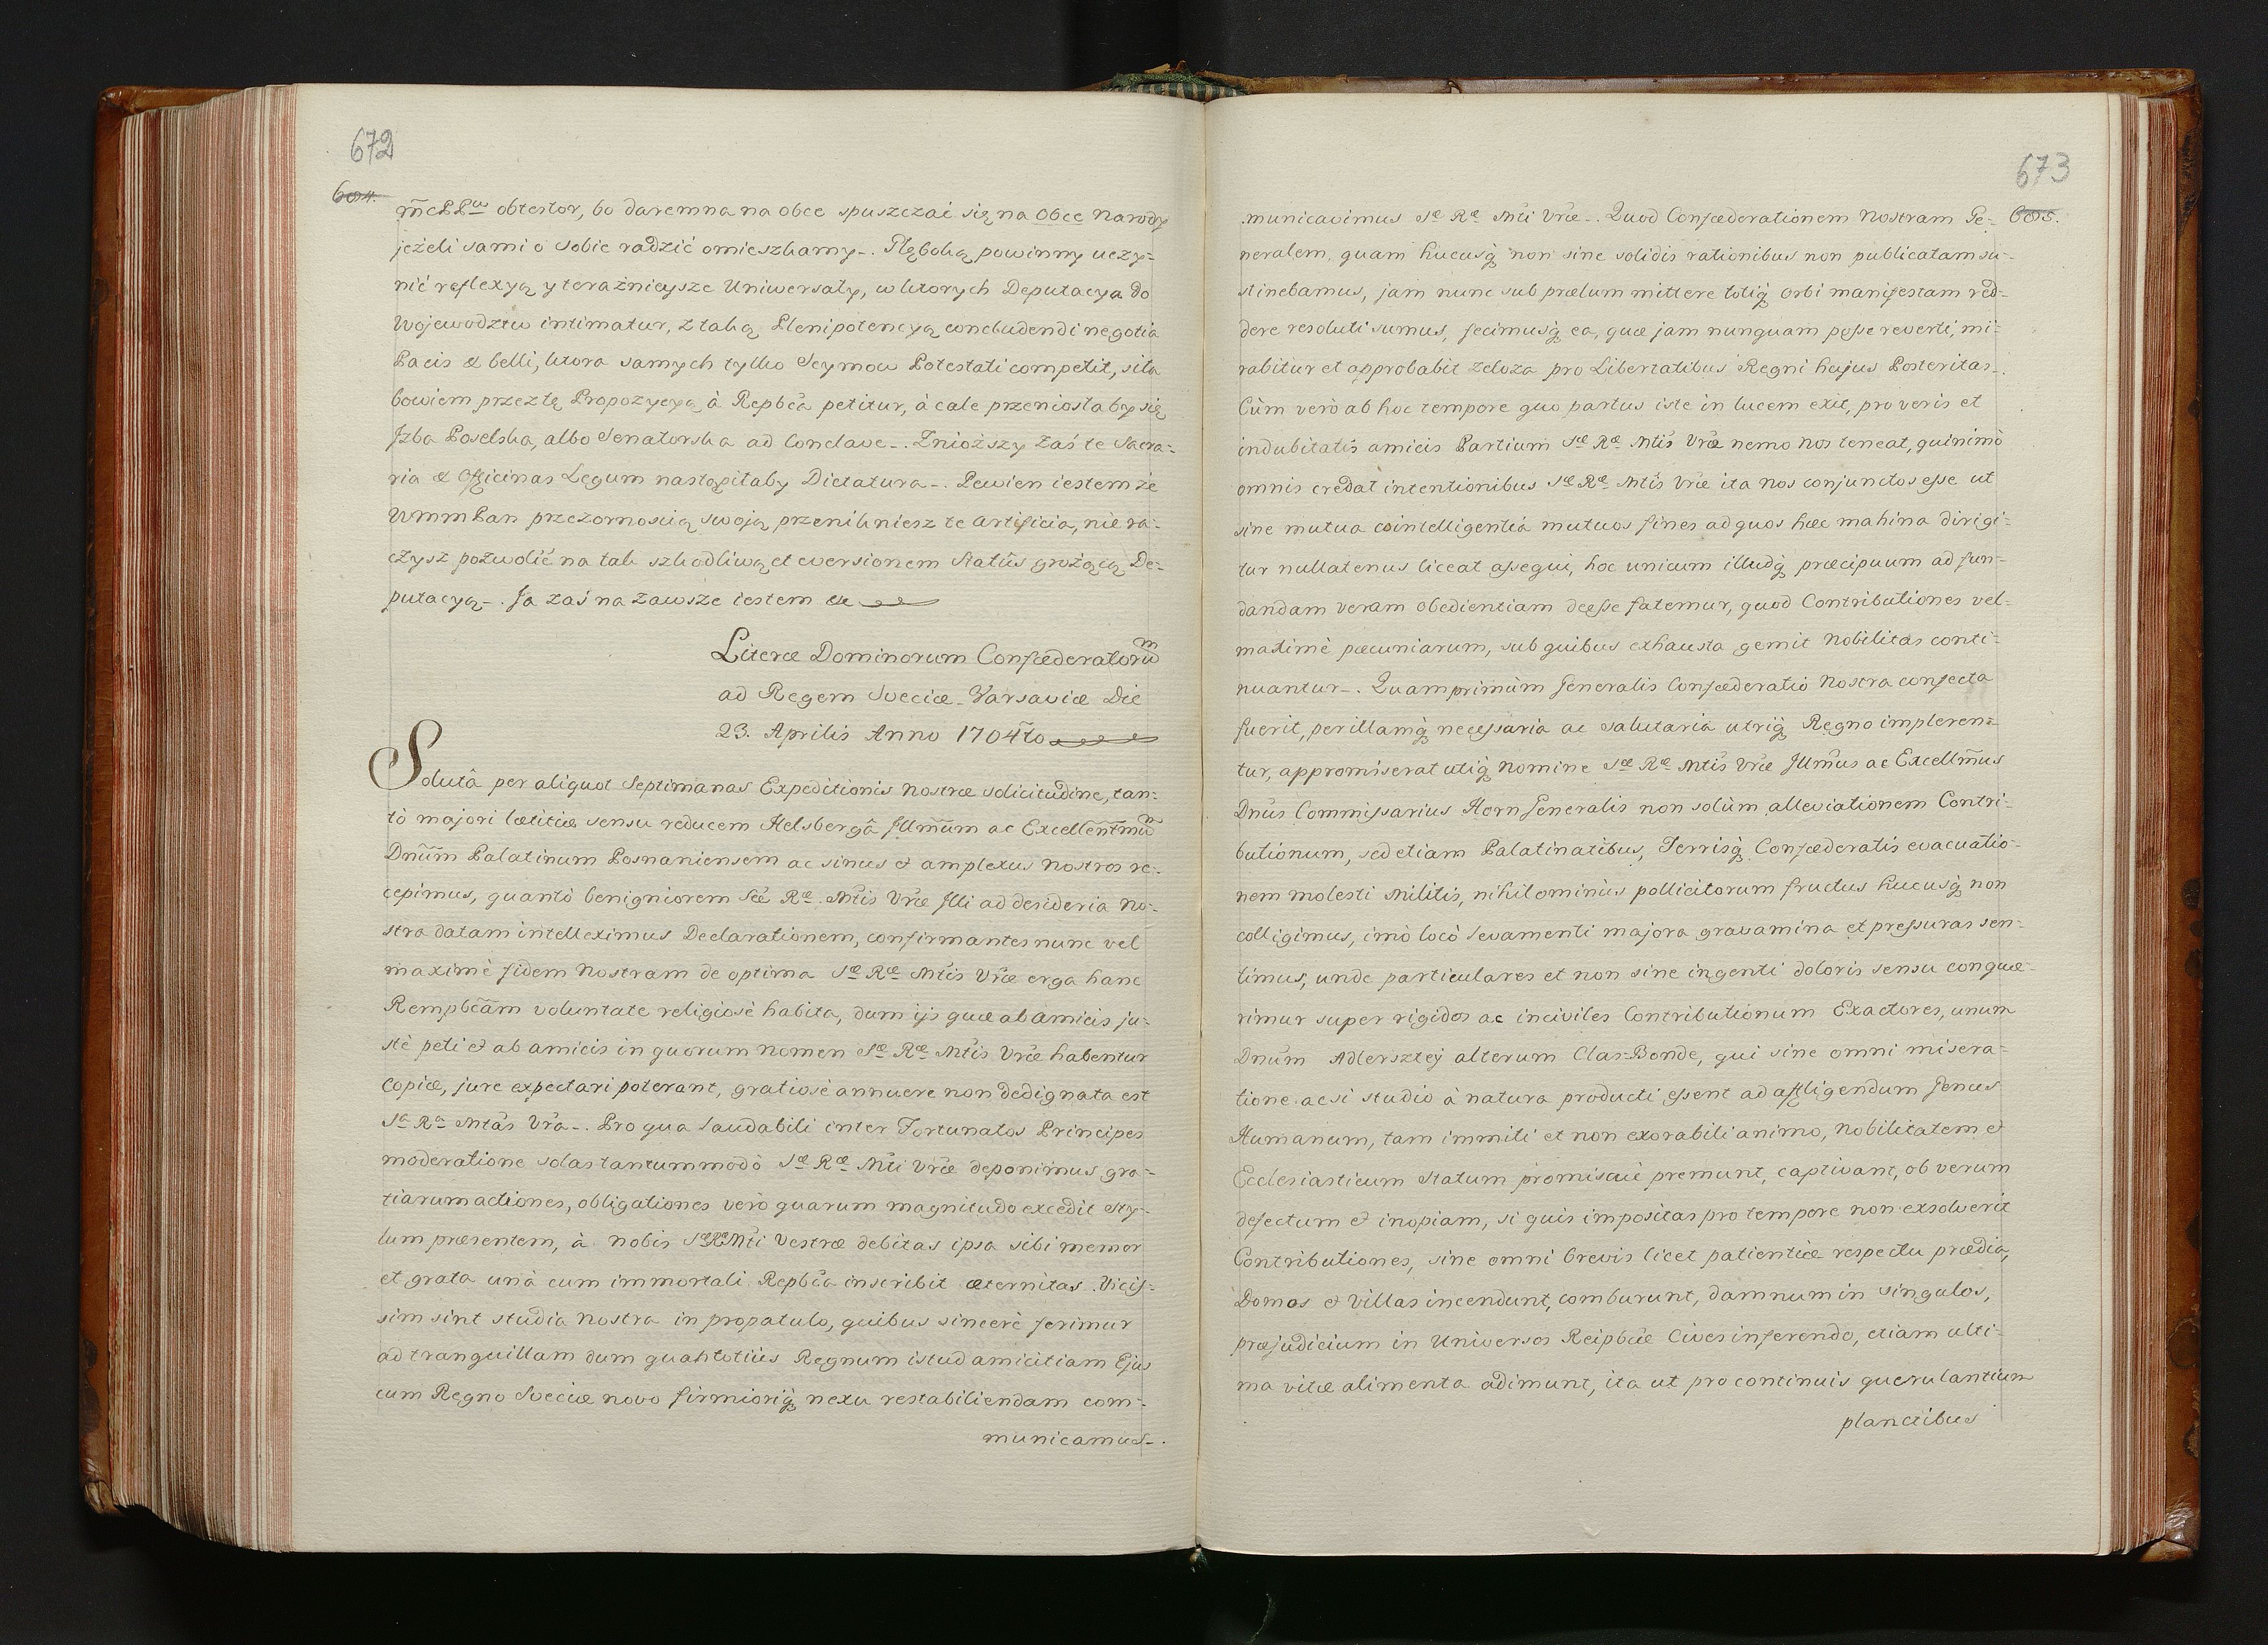 672
604.
m̃cPPuo obtestor, bo daremna na obce spuszczać się na Obce narody
jeżeli sami o sobie radzić omieszkamy_. Głęboką powinny uczy=
nić reflexyą y teraźnieysze Uniwersały, w ktorych Deputacya do
Wojewodztw intimatur, z taką Plenipotencyą concludendi negotia
Pacis & belli, ktora samych tylko Seymow Potestati competit, siła
bowiem przez tę Propozycyą à Repbca petitur, à cale przeniosłaby się
Jzba Poselska, albo Senatorska ad Conclave_. Zniozszy zaś te Sacra=
ria & Officinas Legum nastąpiłaby Dictatura_. Pewien iestem że
WmmPan przezornoscią swoją przenikniesz te artificia, nie ra=
czysz pozwolić na tak szkodliwą et eversionem Statûs grożącą De=
putacyą_. Ja zaś na zawsze iestem &c
Literæ Dominorum Confæderatorũm
ad Regem Sveciæ_Varsaviæ Die
23. Aprilis Anno 1704to
Solutâ per aliquot Septimanas Expeditionis nostræ solicitudine, tan=
tò majori lætitiæ sensu reducem Helsbergâ Jllm̃um ac Excellent̃mũm
Dnũm Palatinum Posnaniensem ac sinus & amplexus nostros re=
cepimus, quantò benigniorem Sæ Ræ Mtis Vræ Jlli ad desideria no=
stra datam intelleximus Declarationem, confirmantes nunc vel
maximè fidem nostram de optima Sæ Ræ Mtis Vræ erga hanc
Rempbcãm voluntate religiosè habita, dum ijs quæ ab amicis ju=
stè peti & ab amicis in quorum nomen Sæ Ræ Mtis Vræ habentur
copiæ, jure expectari poterant, gratiosè annuere non dedignata est
Sa Ra Mtas Vra_. Pro qua laudabili inter Fortunatos Principes
moderatione solas tantummodò Sæ Ræ Mti Vræ deponimus gra=
tiarum actiones, obligationes verò quarum magnitudo excedit sty=
lum præsentem, à nobis SæRæMti Vestræ debitas ipsa sibi memor
et grata unà cum immortali Repbca inscribit æternitas. Vicis=
sim sint studia nostra in propatulo, quibus sincerè ferimur
ad tranquillam dum quahtotiùs Regnum istud amicitiam Ejus
cum Regno Sveciæ novo firmioriq nexu restabiliendam com=
municamus_.
673
605.
municavimus Sæ Ræ Mti Vræ_. Quod Confæderationem nostram Ge=
neralem, quam hucusq non sine solidis rationibus non publicatam su=
stinebamus, jam nunc sub prælum mittere totiq orbi manifestam red=
dere resoluti sumus, fecimusq ea, quæ jam nunquam posse reverti, mi=
rabitur et approbabit zeloza pro Libertatibus Regni hujus Posteritas_.
Cùm verò ab hoc tempore quo partus iste in lucem exit, pro veris et
indubitatis amicis Partium Sæ Ræ Mtis Vræ nemo nos teneat, quinimò
omnis credat intentionibus Sæ Ræ Mtis Vræ ita nos conjunctos esse ut
sine mutua cointelligentiâ mutuos fines ad quos hæc mahina dirigi=
tur nullatenus liceat assequi, hoc unicum illudq præcipuum ad fun=
dandam veram obedientiam deesse fatemur, quod Contributiones vel=
maximè pæcuniarum, sub quibus exhausta gemit Nobilitas conti=
nuantur_. Quamprimùm Generalis Confæderatio Nostra confecta
fuerit, per illamq necessaria ac salutaria utriq Regno impleren=
tur, appromiserat utiq nomine Sæ Ræ Mtis Vræ Jllm̃us ac Excellm̃us
Dnũs Commissarius Horn Generalis non solùm alleviationem Contri=
butionum, sed etiam Palatinatibus, Terrisq Confæderatis evacuatio=
nem molesti Militis, nihilominùs pollicitorum fructus hucusq non
colligimus, imò locò levamenti majora gravamina et pressuras sen=
timus, unde particulares et non sine ingenti doloris sensu conquæ=
rimur super rigidos ac inciviles Contributionum Exactores, unum
Dnũm Adlersztej alterum Clas=Bonde, qui sine omni misera=
tione ac si studiò à natura producti essent ad affligendum Genus
Humanum, tam immiti et non exorabili animo, Nobilitatem &
Ecclesiasticum Statum promiscuè premunt, captivant, ob verum
defectum & inopiam, si quis impositas pro tempore non exsolverit
Contributiones, sine omni brevis licet patientiæ respectu prædia,
Domos & Villas incendunt, comburunt, damnum in singulos,
præjudicium in Universos Reipbcæ Cives inferendo, etiam ulti=
ma vitæ alimenta adimunt, ita ut pro continuis querulantium
planctibus